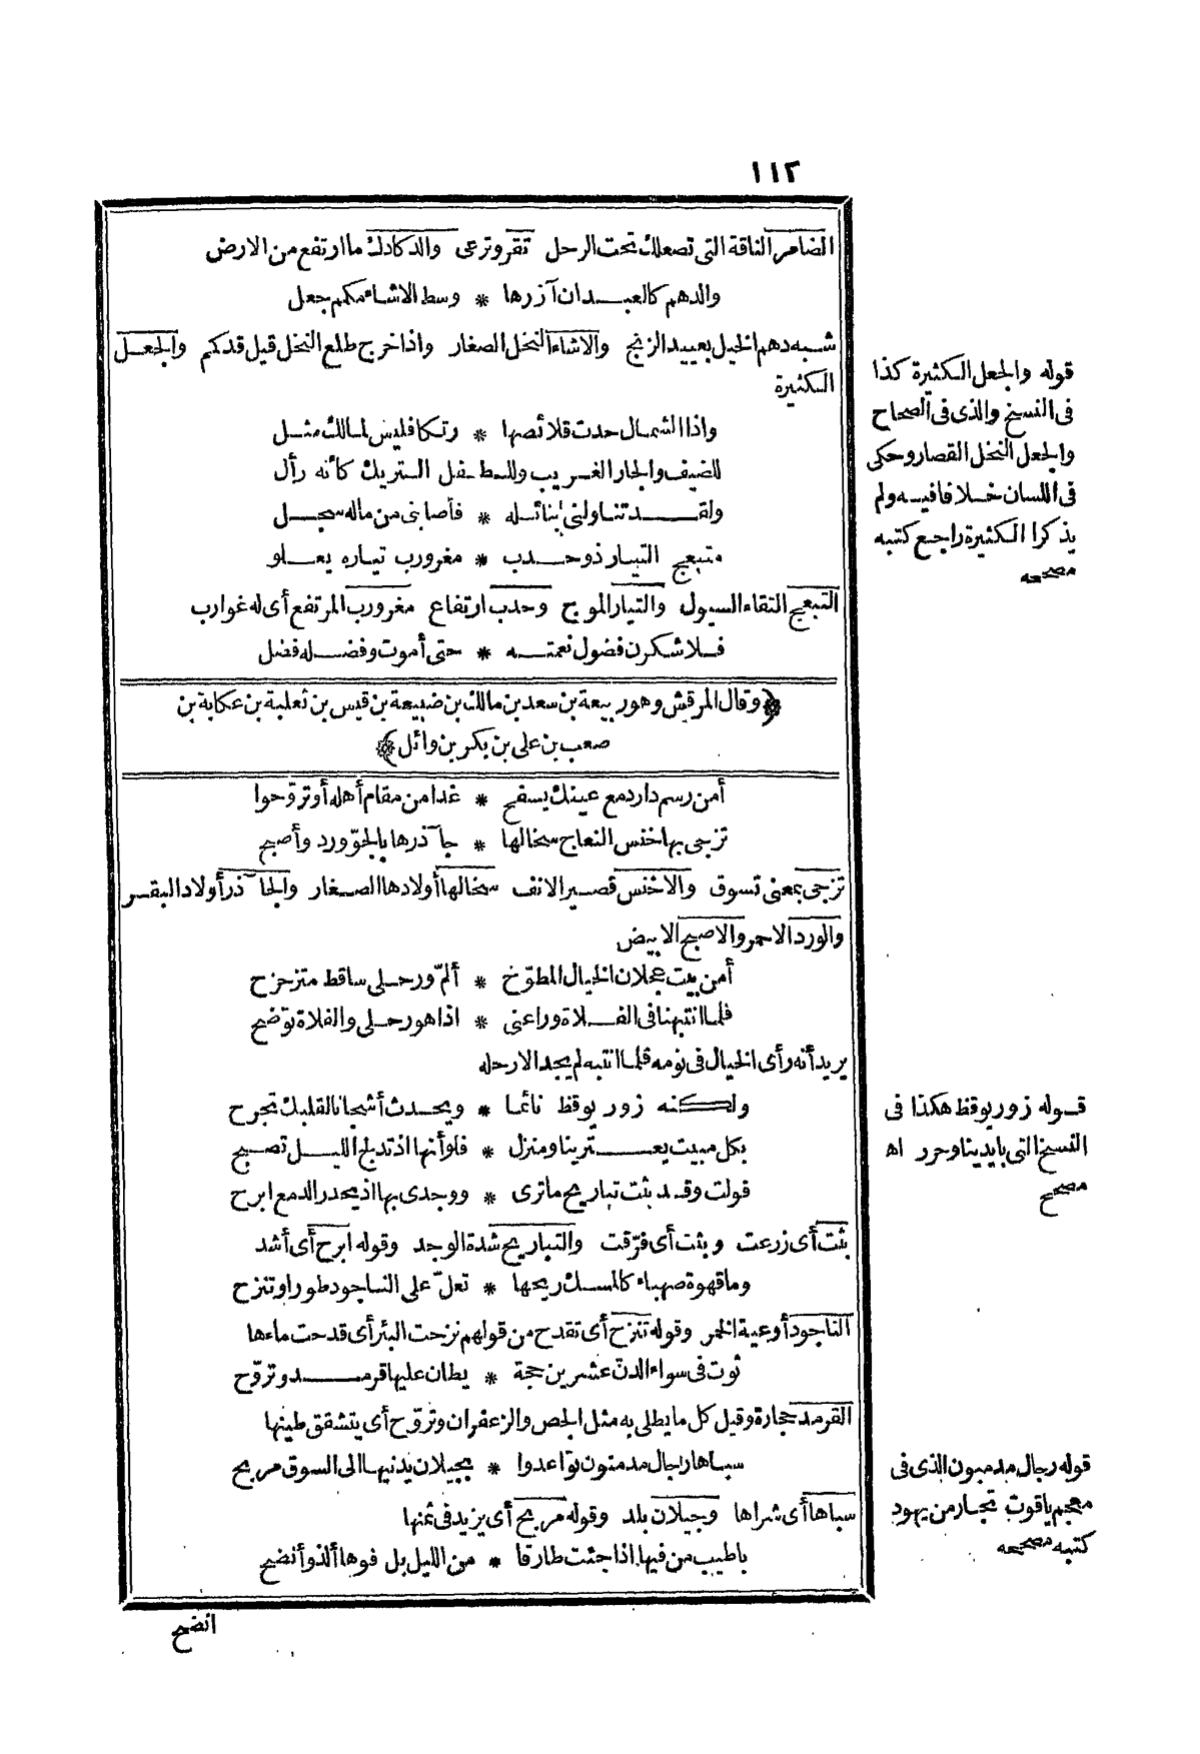 ١١٢
الضامر الناقة التى تصعلك تحت الرحل تقر وترعى والدكادك ما ارتفع من الارض
والدهم كالعبدان آزرها * وسط الاشاء مكمم جعل
شبه دهم الخيل بعبيد الزنج والاشاء النخل الصغار واذا خرج طلع النخل قيل قد كم والجعل
الكثيرة
واذا الشمال حدت قلائصها * رتكا فليس لمالك مثل
للضيف والجار الغريب وللطفل التريك كأنه رأل
ولقد تناولنى بنائله * فأصابنى من ماله سجل
متبعج التيار ذو حدب * مغرورب تياره يعلو
التبعج التقاء السيول والتيار الموج وحدب ارتفاع مغرورب المرتفع أى له غوارب
فلا شكرن فضول نعمته * حتى أموت وفضله فضل
﴿وقال المرقش وهو ربيعة بن سعد بن مالك بن ضبيعة بن قيس بن ثعلبة بن عكابة بن
صعب بن على بن بكر بن وائل﴾
أمن رسم دار دمع عينك يسفح * غدا من مقام أهله أو تروّحوا
تزجى بها خنس النعاج سخالها * جآذرها بالجوّ ورد وأصبح
تزجى بمعنى تسوق والاخنس قصير الانف سخالها أولادها الصغار والجآذر أولاد البقر
والورد الاحمر والاصبح الابيض
أمن بيت عجلان الخيال المطوّخ * ألمّ ورحلى ساقط متزحزح
فلما انتبهنا فى الفلاة وراعنى * اذا هو رحلى والفلاة توّضح
يريد أنه رأى الخيال فى نومه فلما انتبه لم يجد الا رحله
ولكنه زور يوقظ نائما * ويحدث أشجانا لقلبك تجرح
بكل مبيت يعترينا ومنزل * فلو أنها اذ تدلج الليل تصبح
فولت وقد بثت تباريح ما ترى * ووجدى بها اذ يحدر الدمع ابرح
بثت أى زرعت وبثت أى فرّقت والتباريح شدة الوجد وقوله ابرح أى أشد
وما قهوة صهباء كالمسك ريحها * تعلّ على الناجود طورا وتنزح
الناجود أوعية الخمر وقوله تنزح أى تقدح من قولهم نزحت البئر أى قدحت ماءها
ثوت فى سواء الدنّ عشرين حجة * يطان عليها قرمد وتروّح
القرمد حجارة وقيل كل ما يطلى به مثل الجص والزعفران وتروّح أى يتشقق طينها
سباها رجال مدمنون تواعدوا * بجيلان يدنيها الى السوق مربح
سباها أى شراها وجيلان بلد وقوله مربح أى يزيد فى ثمنها
باطيب من فيها اذا جئت طارقا * من الليل بل فوها ألذ وأنضح
انضح
قوله والجعل الكثيرة كذا
فى النسخ والذى فى الصحاح
والجعل النخل القصار وحكى
فى اللسان خلافا فيه ولم
يذكرا الكثيرة راجع كتبه
مصححه
قوله زور يوقظ هكذا فى
النسخ التى بايدينا وحرر اه
مصحح
قوله رجال مدمنون الذى فى
معجم ياقوت تجار من يهود
كتبه مصححه